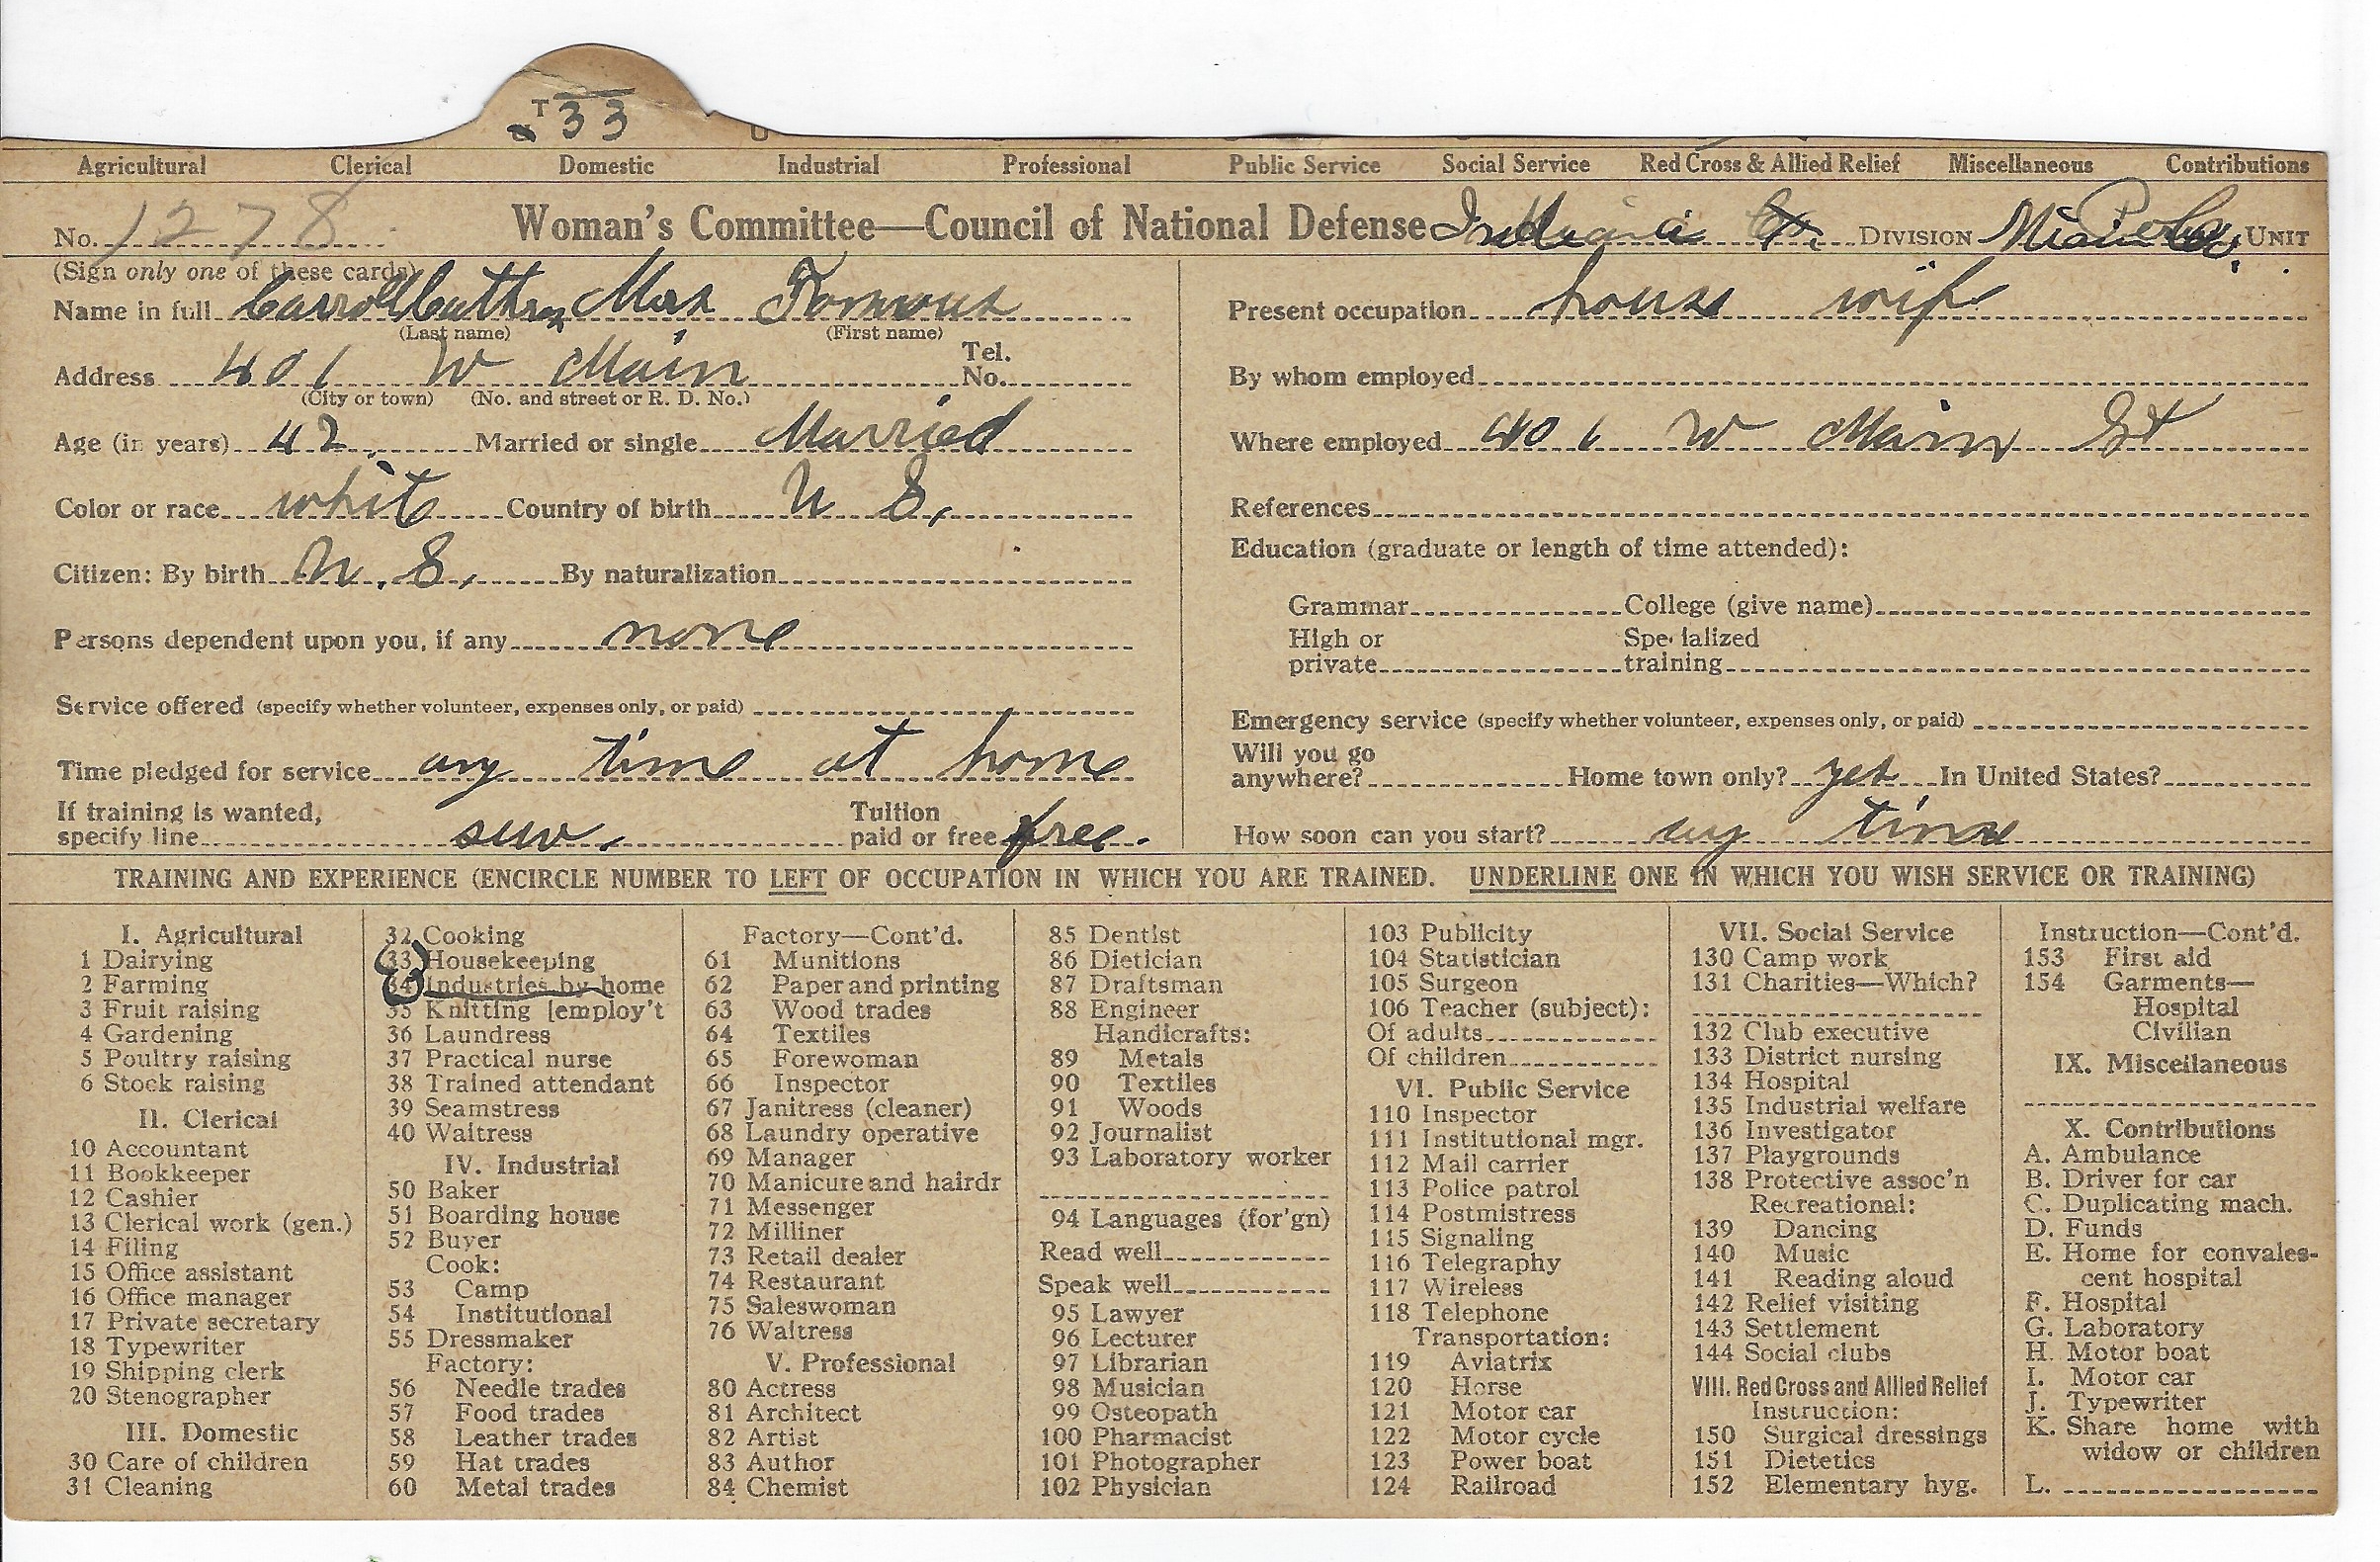 T 33
Agricultural Clerical Domestic Industrial Professional Public Service Social Service Red Cross & Allied Relief Miscellaneous Contributions
No. 1278 Woman's Committee—Council of National Defense Indiana DIVISION UNIT
(Sign only one of these cards)
Name in full Mrs
(Last name) (First name)
Address 401 W Main Tel. No.
(City or town) (No. and street or R. D. No.)
Age (in years) 42 Married or single Married
Color or race whit Country of birth U S.
Citizen: By birth U. S. By naturalization
Persons dependent upon you, if any none
Service offered (specify whether volunteer, expenses only, or paid)
Time pledged for service any time at home
If training is wanted, specify line sew. Tuition paid or free free.
Present occupation house wife
By whom employed
Where employed 401 W Main St
References
Education (graduate or length of time attended):
Grammar College (give name)
High or private Specialized training
Emergency service (specify whether volunteer, expenses only, or paid)
Will you go anywhere? Home town only? yes In United States?
How soon can you start? any time
TRAINING AND EXPERIENCE (ENCIRCLE NUMBER TO LEFT OF OCCUPATION IN WHICH YOU ARE TRAINED. UNDERLINE ONE IN WHICH YOU WISH SERVICE OR TRAINING)
I. Agricultural
1 Dairying
2 Farming
3 Fruit raising
4 Gardening
5 Poultry raising
6 Stock raising
II. Clerical
10 Accountant
11 Bookkeeper
12 Cashier
13 Clerical work (gen.)
14 Filing
15 Office assistant
16 Office manager
17 Private secretary
18 Typewriter
19 Shipping clerk
20 Stenographer
III. Domestic
30 Care of children
31 Cleaning
32 Cooking
33 Housekeeping
34 Industries by home
35 Knitting [employ't
36 Laundress
37 Practical nurse
38 Trained attendant
39 Seamstress
40 Waitress
IV. Industrial
50 Baker
51 Boarding house
52 Buyer
Cook:
53 Camp
54 Institutional
55 Dressmaker
Factory:
56 Needle trades
57 Food trades
58 Leather trades
59 Hat trades
60 Metal trades
Factory—Cont'd.
61 Munitions
62 Paper and printing
63 Wood trades
64 Textiles
65 Forewoman
66 Inspector
67 Janitress (cleaner)
68 Laundry operative
69 Manager
70 Manicure and hairdr
71 Messenger
72 Milliner
73 Retail dealer
74 Restaurant
75 Saleswoman
76 Waitress
V. Professional
80 Actress
81 Architect
82 Artist
83 Author
84 Chemist
85 Dentist
86 Dietician
87 Draftsman
88 Engineer
Handicrafts:
89 Metals
90 Textiles
91 Woods
92 Journalist
93 Laboratory worker
94 Languages (for'gn)
Read well
Speak well
95 Lawyer
96 Lecturer
97 Librarian
98 Musician
99 Osteopath
100 Pharmacist
101 Photographer
102 Physician
103 Publicity
104 Statistician
105 Surgeon
106 Teacher (subject):
Of adults
Of children
VI. Public Service
110 Inspector
111 Institutional mgr.
112 Mail carrier
113 Police patrol
114 Postmistress
115 Signaling
116 Telegraphy
117 Wireless
118 Telephone
Transportation:
119 Aviatrix
120 Horse
121 Motor car
122 Motor cycle
123 Power boat
124 Railroad
VII. Social Service
130 Camp work
131 Charities—Which?
132 Club executive
133 District nursing
134 Hospital
135 Industrial welfare
136 Investigator
137 Playgrounds
138 Protective assoc'n
Recreational:
139 Dancing
140 Music
141 Reading aloud
142 Relief visiting
143 Settlement
144 Social clubs
VIII. Red Cross and Allied Relief
Instruction:
150 Surgical dressings
151 Dietetics
152 Elementary hyg.
Instruction—Cont'd.
153 First aid
154 Garments—
Hospital
Civilian
IX. Miscellaneous
X. Contributions
A. Ambulance
B. Driver for car
C. Duplicating mach.
D. Funds
E. Home for convales-
cent hospital
F. Hospital
G. Laboratory
H. Motor boat
I. Motor car
J. Typewriter
K. Share home with
widow or children
L.